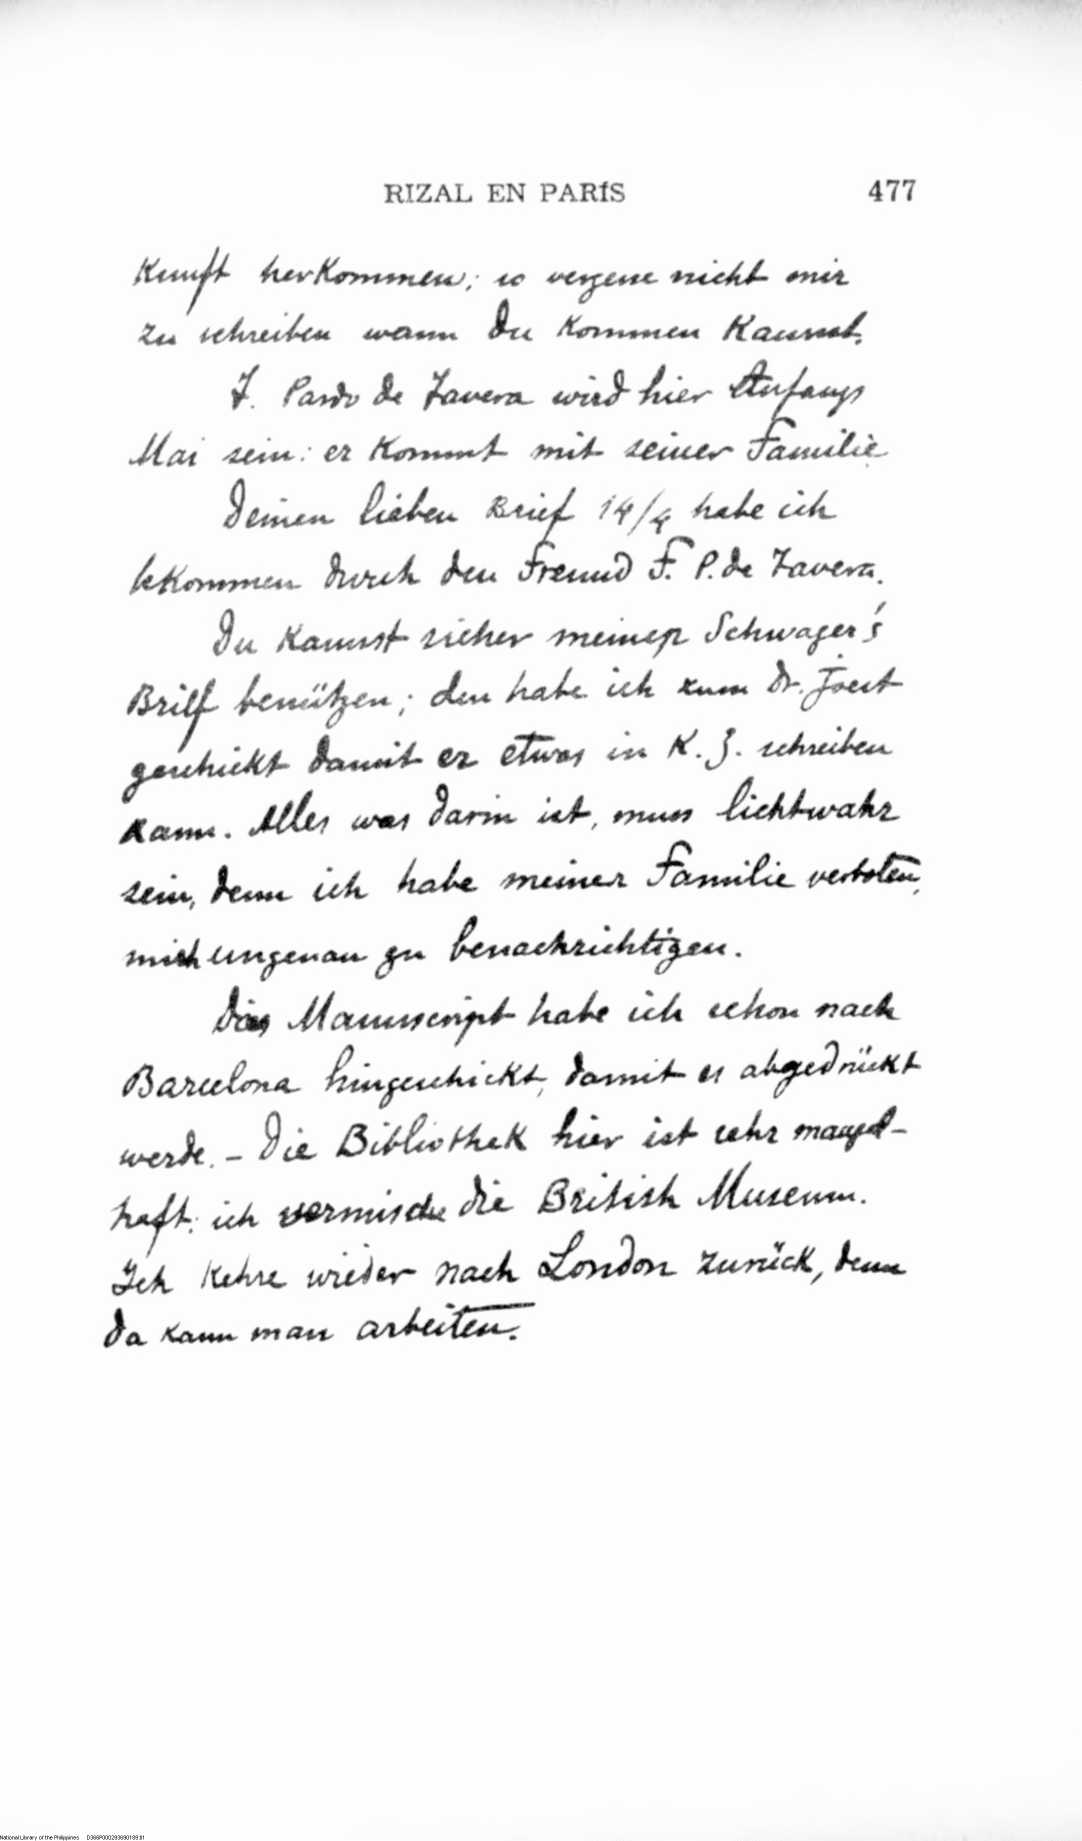 RIZAL EN PARÍS 477
Kunft herkommen; so vergesse nicht mir
zu schreiben wann Du kommen Kannst.
T. Pardo de Tavera wird hier Anfangs
Mai sein: er kommt mit seiner Familie
Deinen lieben Brief 14/4 habe ich
bekommen durch den Freund F. P. de Tavera.
Du kannst sicher meines Schwager's
Brief benützen; den habe ich zum Dr. Joest
geschickt damit er etwas in K. Z. schreiben
kann. Alles was darin ist, muss lichtwahr
sein, denn ich habe meiner Familie verboten,
mich ungenau zu benachrichtigen.
Das Manuscript habe ich schon nach
Barcelona hingeschickt, damit es abgedrückt
werde. – Die Bibliothek hier ist sehr mangel-
haft: ich vermische die British Museum.
Ich kehre wieder nach London zurück, denn
da kann man arbeiten.
National Library of the Philippines